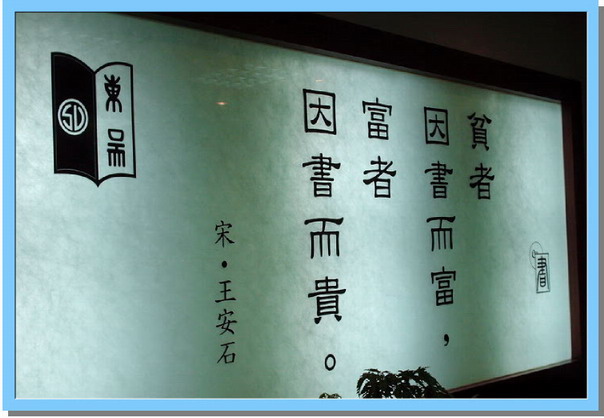 書
貧者
因書而富，
富者
因書而貴。
宋·王安石
東吳
SD